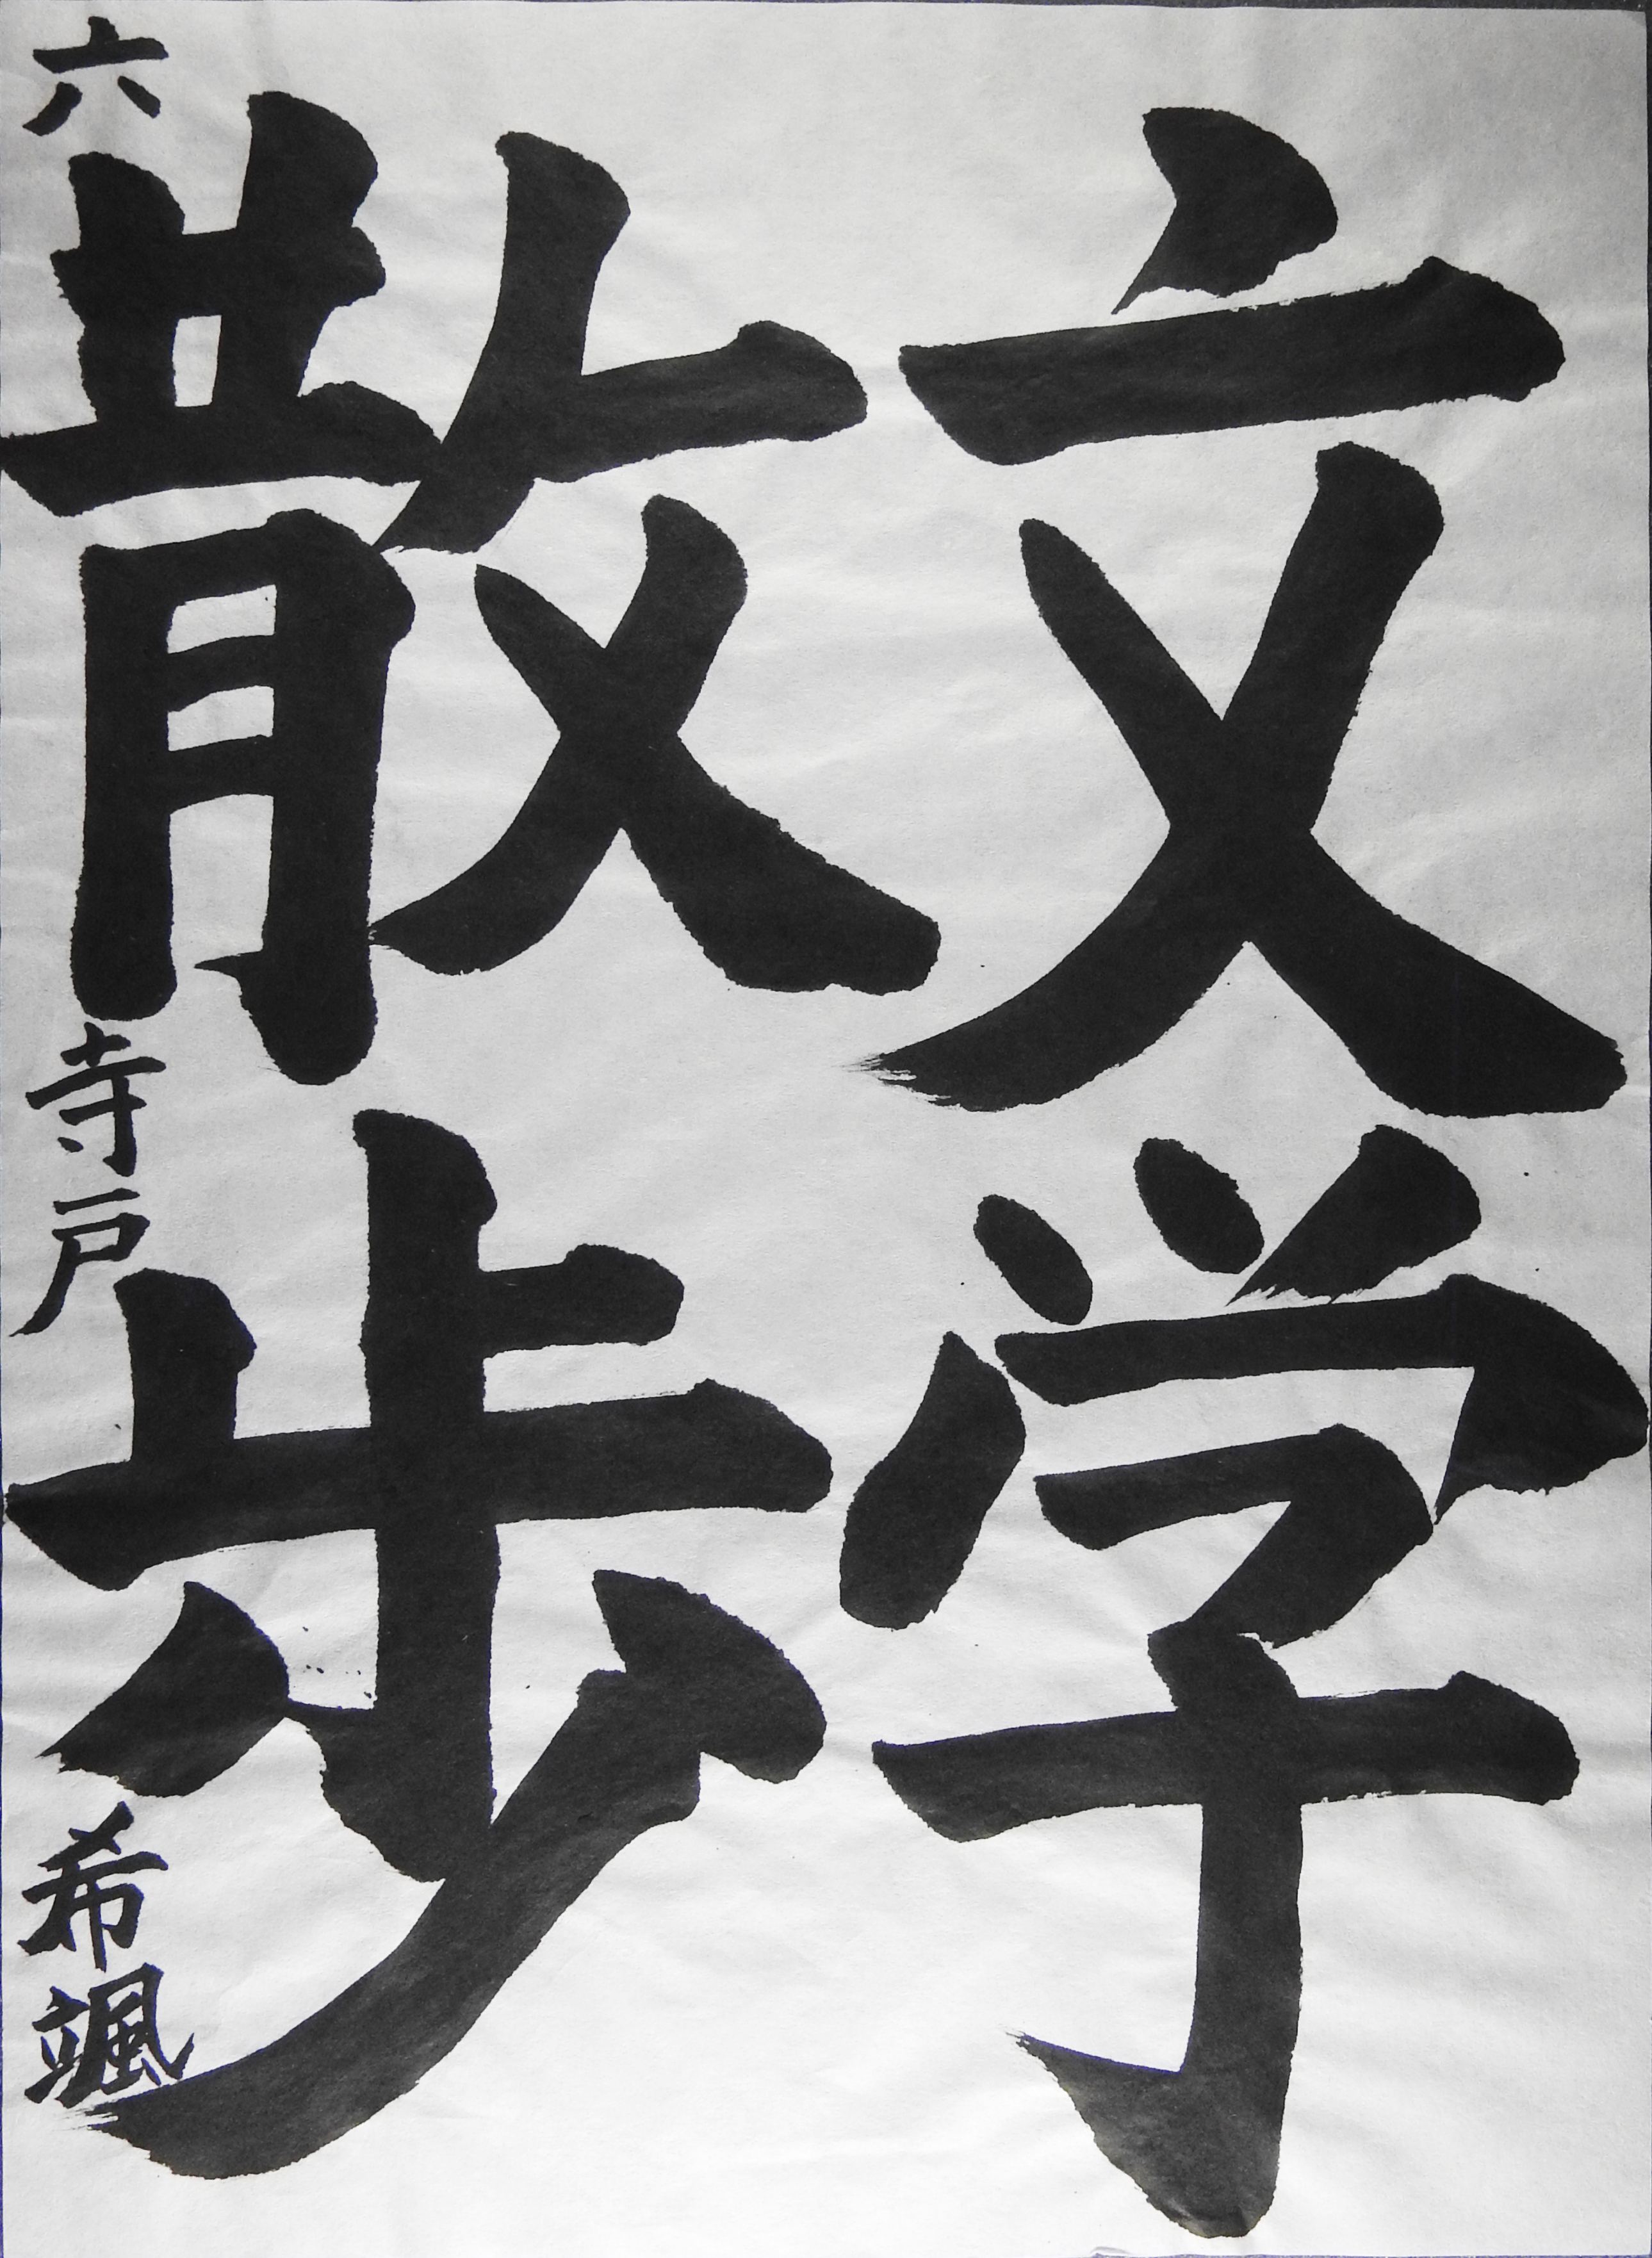 文学
散歩
六 寺戸 希颯